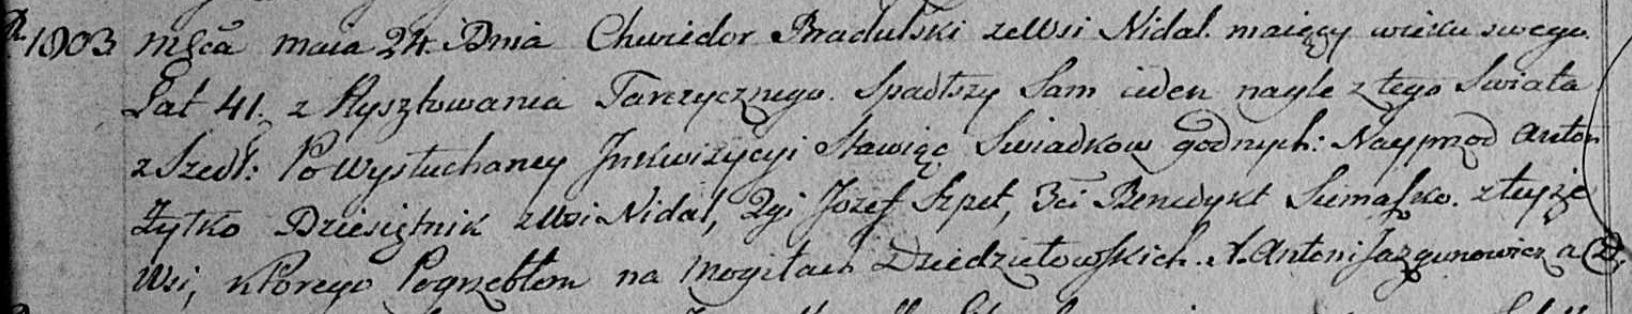 R. 1803 mśca maia 24. Dnia Chwiedor Bradulski ze Wsi Nidal. maiący wieku swego.
Lat 41. z Rysztowania Tarczycznego. Spadłszy Sam ieden nagle z tego Swiata
z Szedł: Po Wysłuchaney Jnkwizycyi Stawiąc Swiadkow godnych: Nayprzod Anton
Zytko Dziesiętnik z Wsi Nidal, 2gi Jozef Szpet, 3ci Benedykt Sumaszko. z teyże
Wsi, ktorego Pogrzebłem na Mogiłach Dziedziełowskich. X. Antoni Jazgunowicz a D.